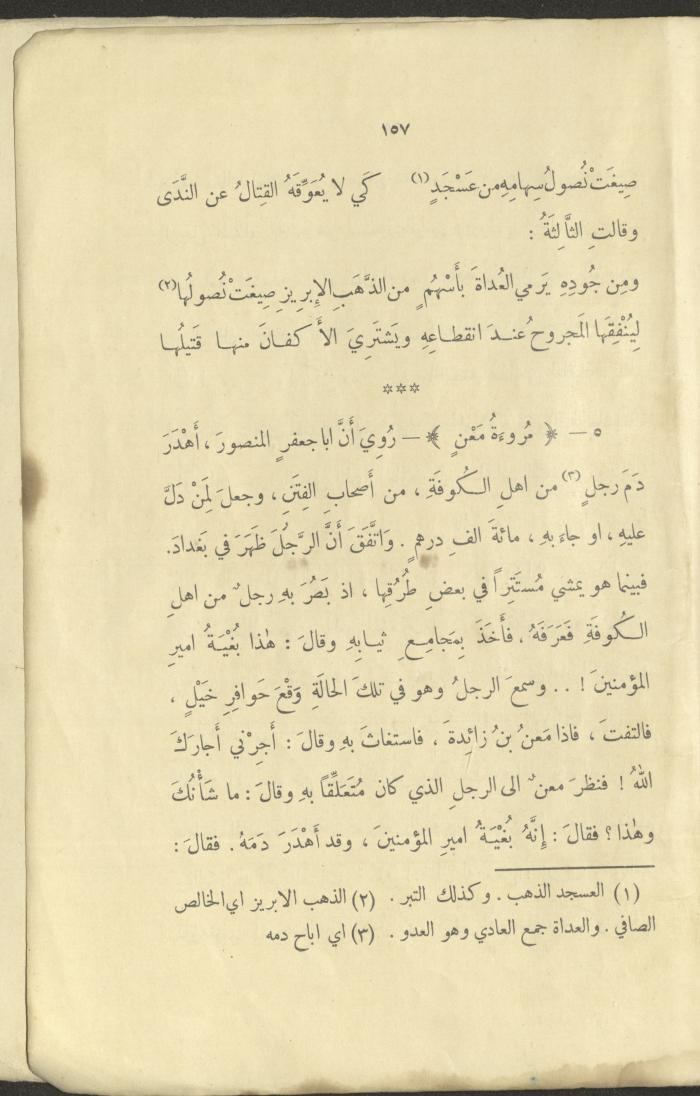 ١٥٧
صِيغَتْ نُصولُ سِهامِهِ من عَسْجَدٍ (١) كَي لا يُعَوِّقَهُ القِتالُ عن النَّدَى
وقالتِ الثَّالِثَةُ :
ومِن جُودِهِ يَرمي العُداةَ بأَسْهُمٍ من الذَّهَبِ الإِبريزِ صِيغَتْ نُصولُها (٢)
لِيُنْفِقَها المَجروحُ عندَ انقطاعِهِ ويَشتَرِيَ الأَكفانَ منها قَتيلُها
***
٥ — ﴿ مُروءَةُ مَعْنٍ ﴾ — رُوِيَ أَنَّ ابا جعفرٍ المنصورَ ، أَهْدَرَ
دَمَ رجلٍ (٣) من اهلِ الكُوفَةِ ، من أَصحابِ الفِتَنِ ، وجعلَ لِمَنْ دَلَّ
عليهِ ، او جاءَ بهِ ، مائةَ الفِ درهمٍ . وَاتَّفَقَ أَنَّ الرَّجُلَ ظَهَرَ في بَغدادَ .
فبينما هو يمشي مُستَتِراً في بعضِ طُرُقِها ، اذ بَصُرَ بهِ رجلٌ من اهلِ
الكُوفَةِ فَعَرَفَهُ ، فأَخَذَ بِمَجامِعِ ثيابِهِ وقالَ : هٰذا بُغْيَةُ اميرِ
المؤمنينَ ! . . وسمعَ الرجلُ وهو في تلكَ الحالَةِ وَقْعَ حَوافِرِ خَيْلٍ ،
فالتفتَ ، فاذا مَعنُ بنُ زائِدةَ ، فاستغاثَ بهِ وقالَ : أَجِرْني أَجارَكَ
اللهُ ! فنظرَ معنٌ الى الرجلِ الذي كان مُتَعَلِّقاً بهِ وقالَ : ما شَأْنُكَ
وهٰذا ؟ فقالَ : إِنَّهُ بُغْيَةُ اميرِ المؤمنينَ ، وقد أَهْدَرَ دَمَهُ . فقالَ :
(١) العسجد الذهب . وكذلك التبر . (٢) الذهب الابريز اي الخالص
الصافي . والعداة جمع العادي وهو العدو . (٣) اي اباح دمه